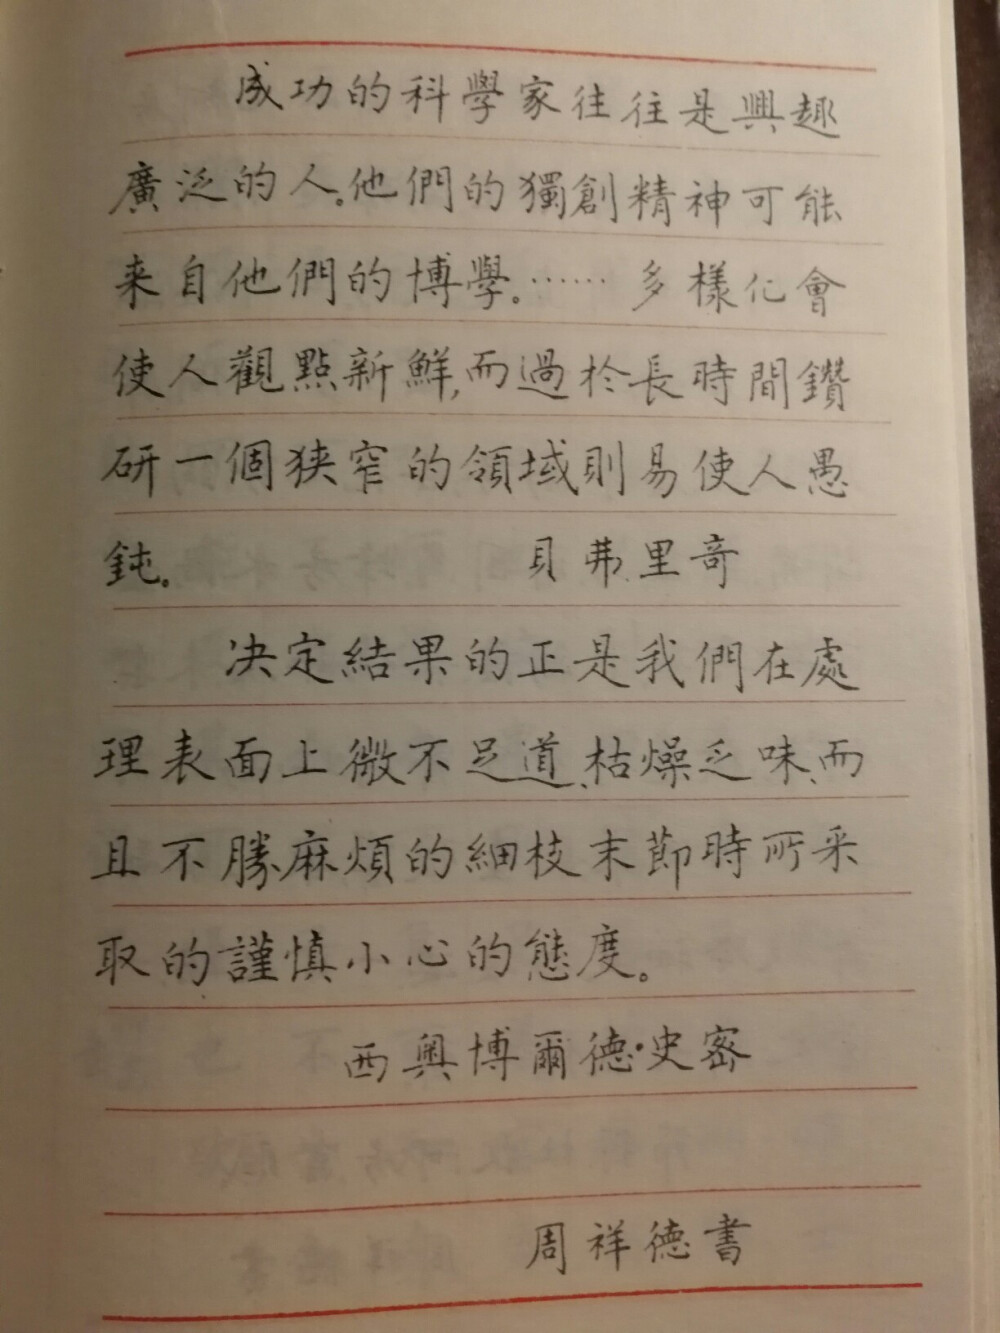 成功的科學家往往是興趣
廣泛的人。他們的獨創精神可能
来自他們的博學。……多樣化會
使人觀點新鮮,而過於長時間鑽
研一個狹窄的領域則易使人愚
鈍。 貝弗里奇
决定結果的正是我們在處
理表面上微不足道、枯燥乏味、而
且不勝麻煩的細枝末節時所采
取的謹慎小心的態度。
西奥博爾德·史密
周祥德書